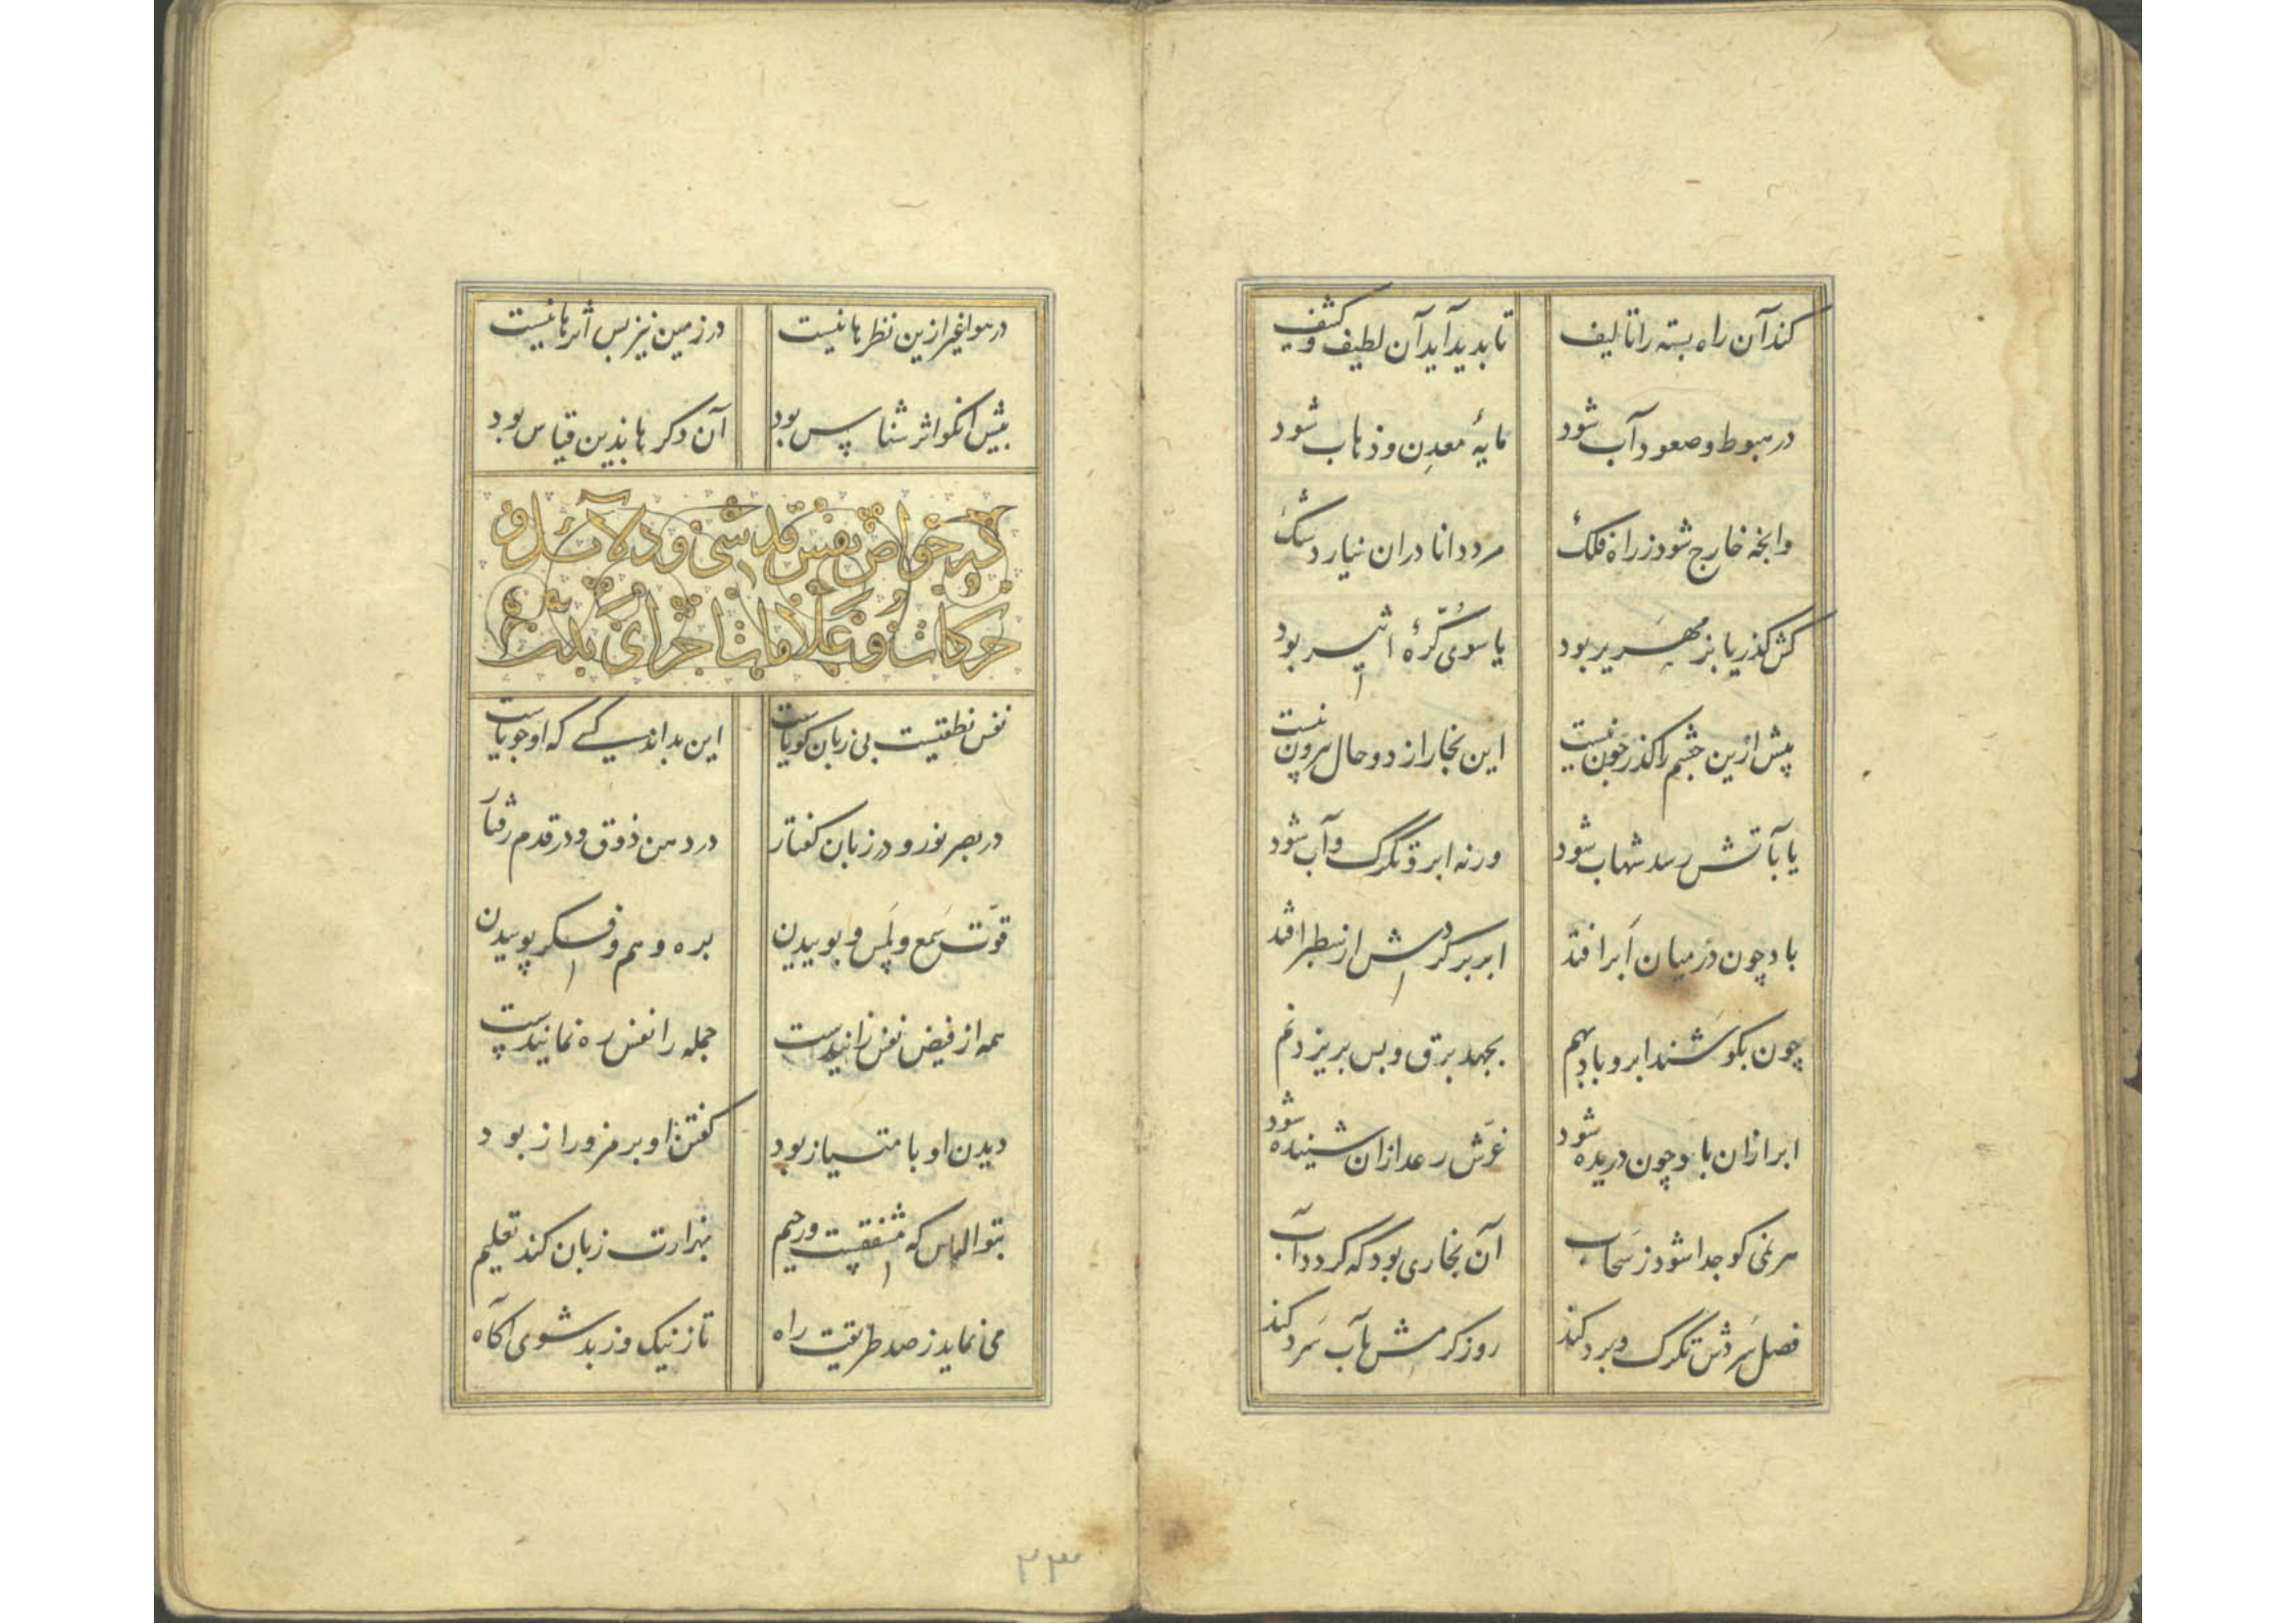 کند آن راه بسته را تالیف تا بدید آید آن لطیف و کثیف
در هبوط و صعود آب شود مایهٔ معدن و ذهاب شود
وانچه خارج شود ز راه فلک مرد دانا در ان نیارد شک
کش گذر یا بزمهریر بود یا سوی کرّهٔ اثیر بود
پیش ازین چشم را گذر چون نیست این بخار از دو حال بیرون نیست
یا بآتش رسد شهاب شود ورنه ابر و تگرگ و آب شود
باد چون در میان ابر افتد ابر بر گردش از سطر افتد
چون بکوشند ابر و باد بهم بجهد برق و بس بریزد نم
ابر ازان باد چون دریده شود غرّش رعد ازان شنیده شود
هر نمی کو جدا شود ز سَحاب آن بخاری بود که گردد آب
فصل سردش تگرگ و برد کند روز گرمش هآب سرد کند
در هوا غیر ازین نظرها نیست در زمین نیز بس اثرها نیست
پیش انکو اثر شناس بود آن دگرها بذین قیاس بود
در خواص نفس قدسی و دلائل و
حرکات و علامات اجزای بدن
نفس نطقیست بی زبان گویاست این بداند کسی که او جویاست
در بصر نور و در زبان گفتار در دهن ذوق و در قدم رفتار
قوّت سَمع و لَمس و بوییدن بره وهم و فکر پوییدن
همه از فیض نفس زاییدست جمله را نفس ره نماییدست
دیدن او با متیاز بود گفتن او برمز و راز بود
بتو الهامس که مشفقیست و رحیم بهزارت زبان کند تعلیم
می نماید ز صد طریقت راه تا ز نیک و ز بد شوی آگاه
۳۳